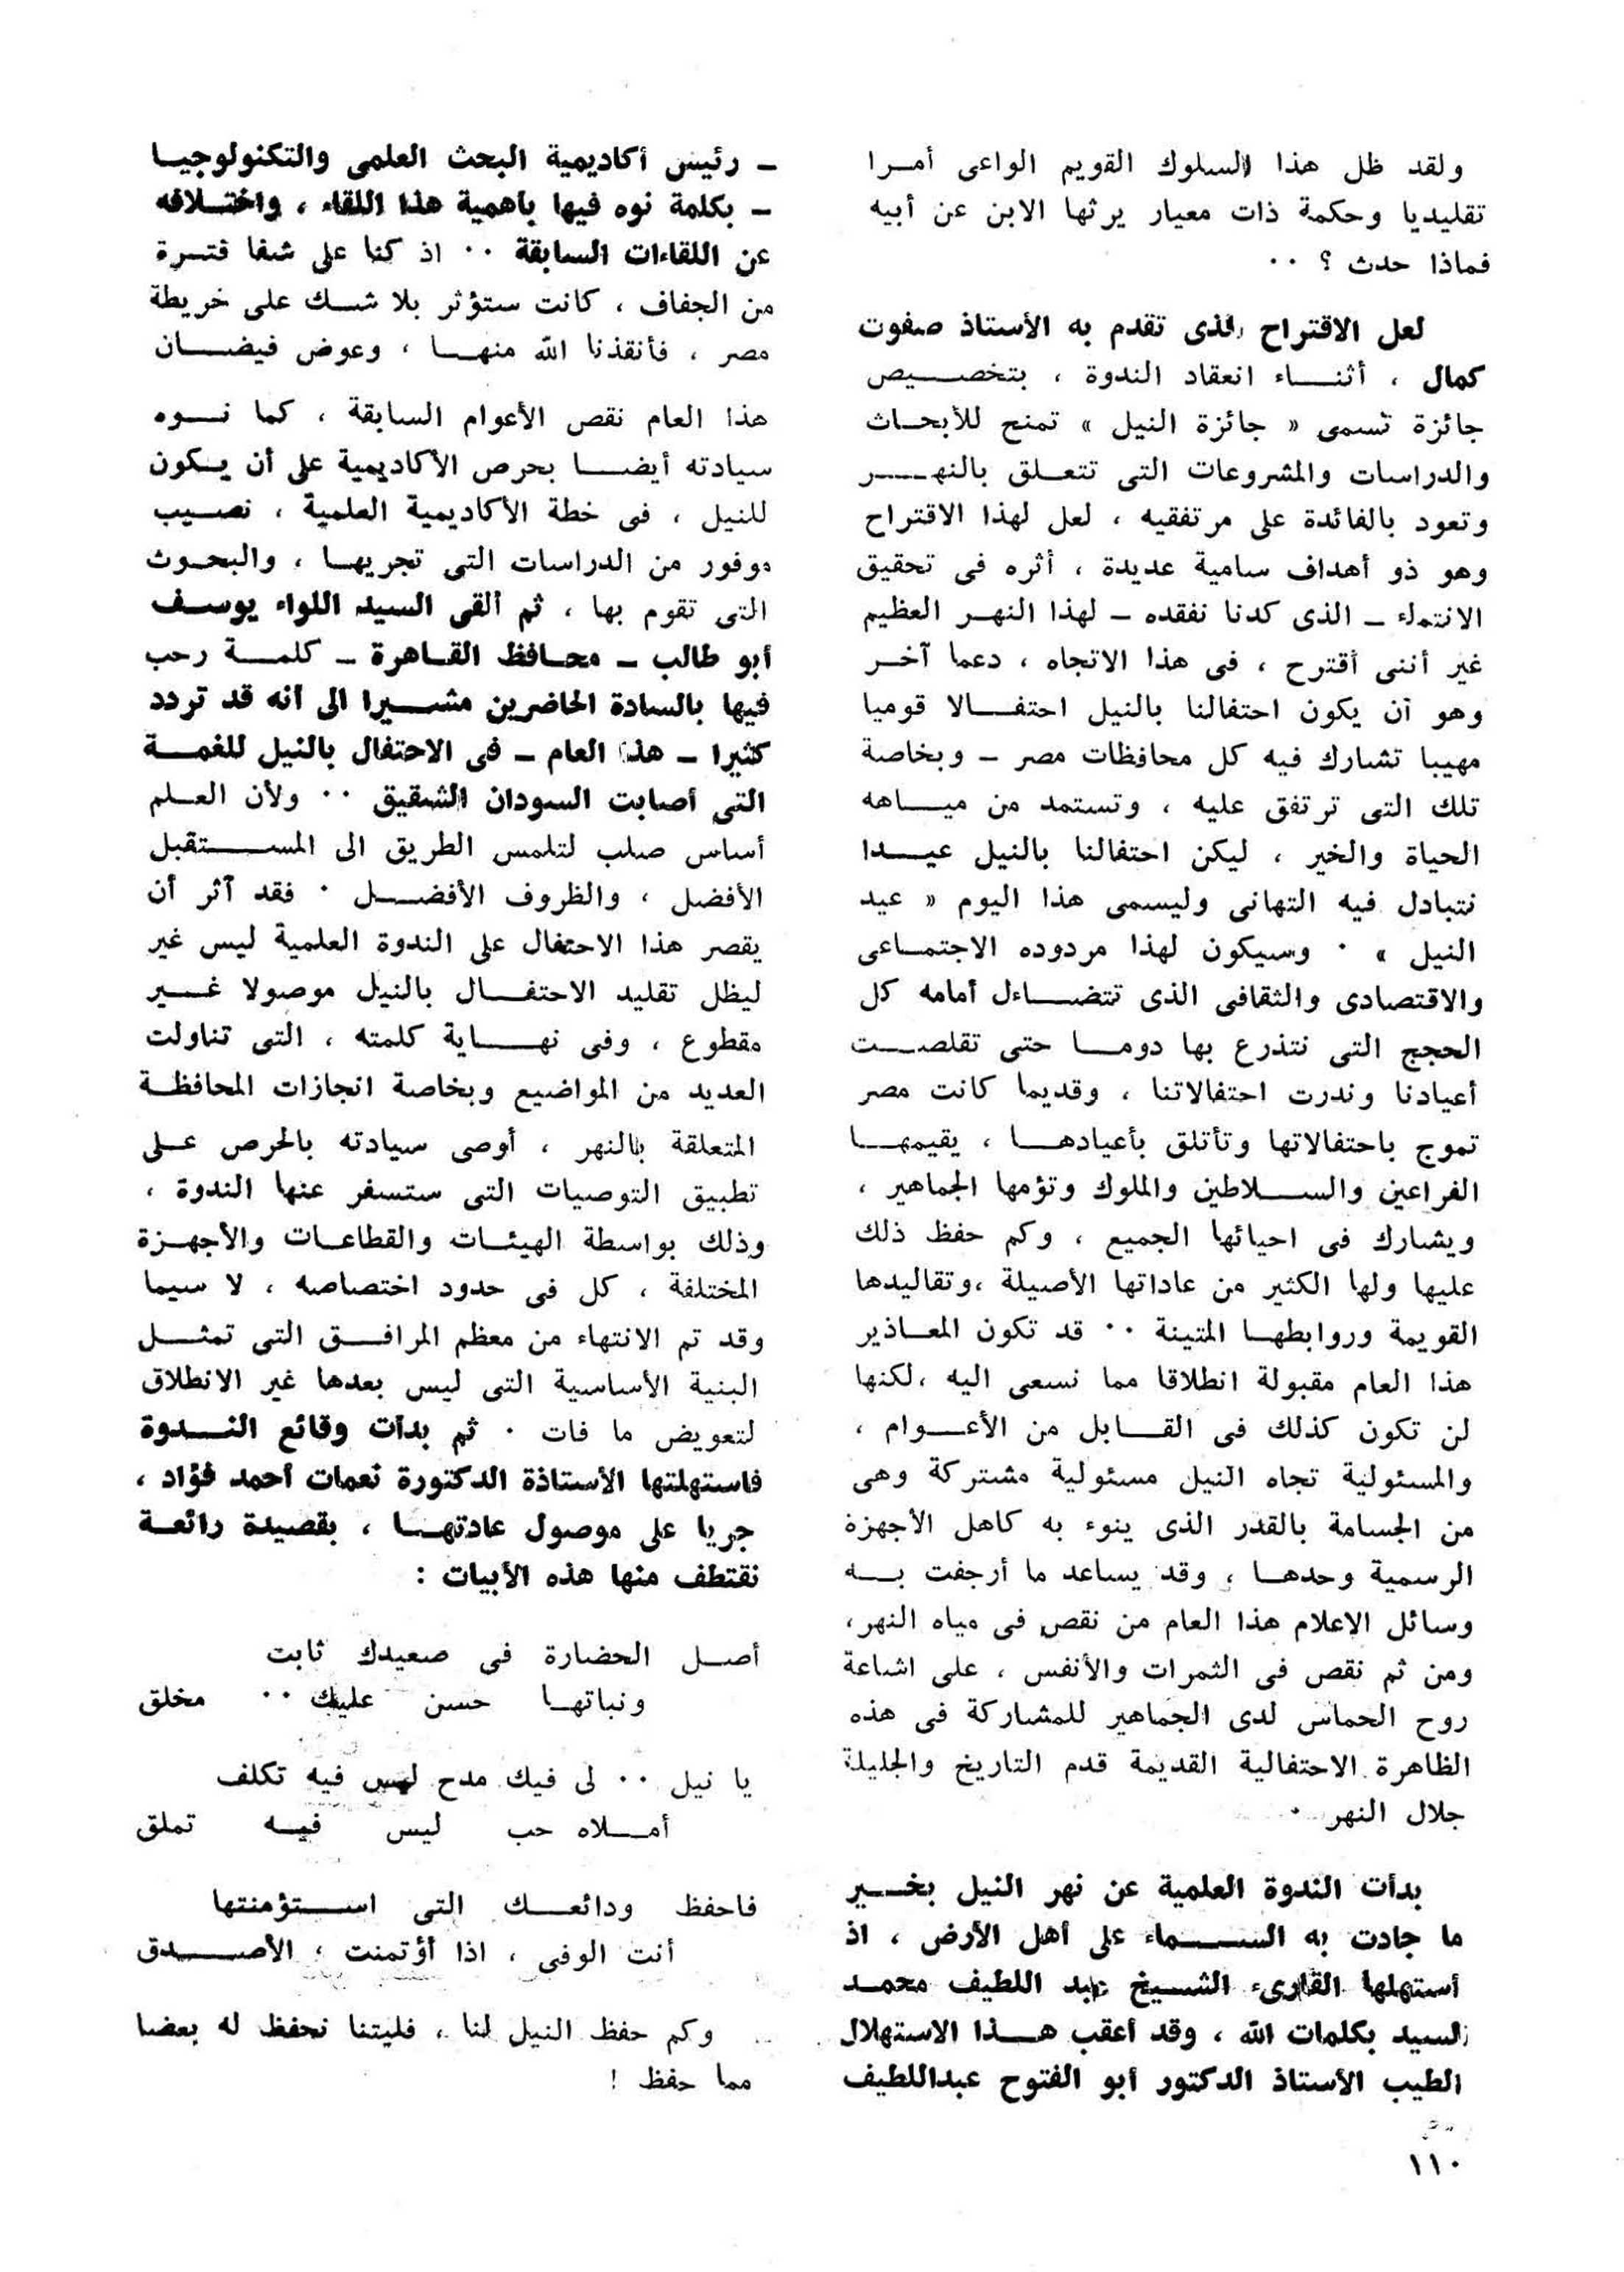 ولقد ظل هذا السلوك القويم الواعى أمرا
تقليديا وحكمة ذات معيار يرثها الابن عن أبيه
فماذا حدث ؟ ٠٠
لعل الاقتراح الذى تقدم به الأستاذ صفوت
كمال ، أثناء انعقاد الندوة ، بتخصيص
جائزة تسمى « جائزة النيل » تمنح للأبحاث
والدراسات والمشروعات التى تتعلق بالنهر
وتعود بالفائدة على مرتفقيه ، لعل لهذا الاقتراح
وهو ذو أهداف سامية عديدة ، أثره فى تحقيق
الانتماء ـ الذى كدنا نفقده ـ لهذا النهر العظيم
غير أننى أقترح ، فى هذا الاتجاه ، دعما آخر
وهو أن يكون احتفالنا بالنيل احتفالا قوميا
مهيبا تشارك فيه كل محافظات مصر ـ وبخاصة
تلك التى ترتفق عليه ، وتستمد من مياهه
الحياة والخير ، ليكن احتفالنا بالنيل عيدا
نتبادل فيه التهانى وليسمى هذا اليوم « عيد
النيل » ٠ وسيكون لهذا مردوده الاجتماعى
والاقتصادى والثقافى الذى تتضاءل أمامه كل
الحجج التى نتذرع بها دوما حتى تقلصت
أعيادنا وندرت احتفالاتنا ، وقديما كانت مصر
تموج باحتفالاتها وتأتلق بأعيادها ، يقيمها
الفراعين والسلاطين والملوك وتؤمها الجماهير ،
ويشارك فى احيائها الجميع ، وكم حفظ ذلك
عليها ولها الكثير من عاداتها الأصيلة ،وتقاليدها
القويمة وروابطها المتينة ٠٠ قد تكون المعاذير
هذا العام مقبولة انطلاقا مما نسعى اليه ،لكنها
لن تكون كذلك فى القابل من الأعوام ،
والمسئولية تجاه النيل مسئولية مشتركة وهى
من الجسامة بالقدر الذى ينوء به كاهل الأجهزة
الرسمية وحدها ، وقد يساعد ما أرجفت به
وسائل الاعلام هذا العام من نقص فى مياه النهر،
ومن ثم نقص فى الثمرات والأنفس ، على اشاعة
روح الحماس لدى الجماهير للمشاركة فى هذه
الظاهرة الاحتفالية القديمة قدم التاريخ والجليلة
جلال النهر ٠
بدأت الندوة العلمية عن نهر النيل بخير
ما جادت به السماء على أهل الأرض ، اذ
أستهلها القارىء الشيخ عبد اللطيف محمد
السيد بكلمات الله ، وقد أعقب هذا الاستهلال
الطيب الأستاذ الدكتور أبو الفتوح عبداللطيف
ـ رئيس أكاديمية البحث العلمى والتكنولوجيا
ـ بكلمة نوه فيها بأهمية هذا اللقاء ، واختلافه
عن اللقاءات السابقة ٠٠ اذ كنا على شفا فترة
من الجفاف ، كانت ستؤثر بلا شك على خريطة
مصر ، فأنقذنا الله منها ، وعوض فيضان
هذا العام نقص الأعوام السابقة ، كما نوه
سيادته أيضا بحرص الأكاديمية على أن يكون
للنيل ، فى خطة الأكاديمية العلمية ، نصيب
موفور من الدراسات التى تجريها ، والبحوث
التى تقوم بها ، ثم ألقى السيد اللواء يوسف
أبو طالب ـ محافظ القاهرة ـ كلمة رحب
فيها بالسادة الحاضرين مشيرا الى أنه قد تردد
كثيرا ـ هذا العام ـ فى الاحتفال بالنيل للغمة
التى أصابت السودان الشقيق ٠٠ ولأن العلم
أساس صلب لتلمس الطريق الى المستقبل
الأفضل ، والظروف الأفضل ٠ فقد آثر أن
يقصر هذا الاحتفال على الندوة العلمية ليس غير
ليظل تقليد الاحتفال بالنيل موصولا غير
مقطوع ، وفى نهاية كلمته ، التى تناولت
العديد من المواضيع وبخاصة انجازات المحافظة
المتعلقة بالنهر ، أوصى سيادته بالحرص على
تطبيق التوصيات التى ستسفر عنها الندوة ،
وذلك بواسطة الهيئات والقطاعات والأجهزة
المختلفة ، كل فى حدود اختصاصه ، لا سيما
وقد تم الانتهاء من معظم المرافق التى تمثل
البنية الأساسية التى ليس بعدها غير الانطلاق
لتعويض ما فات ٠ ثم بدأت وقائع الندوة
فاستهلتها الأستاذة الدكتورة نعمات أحمد فؤاد ،
جريا على موصول عادتها ، بقصيدة رائعة
نقتطف منها هذه الأبيات :
أصل الحضارة فى صعيدك ثابت
ونباتها حسن عليك ٠٠ مخلق
يا نيل ٠٠ لى فيك مدح ليس فيه تكلف
أملاه حب ليس فيه تملق
فاحفظ ودائعك التى استؤمنتها
أنت الوفى ، اذا أؤتمنت ، الأصدق
وكم حفظ النيل لنا ، فليتنا نحفظ له بعضا
مما حفظ !
١١٠